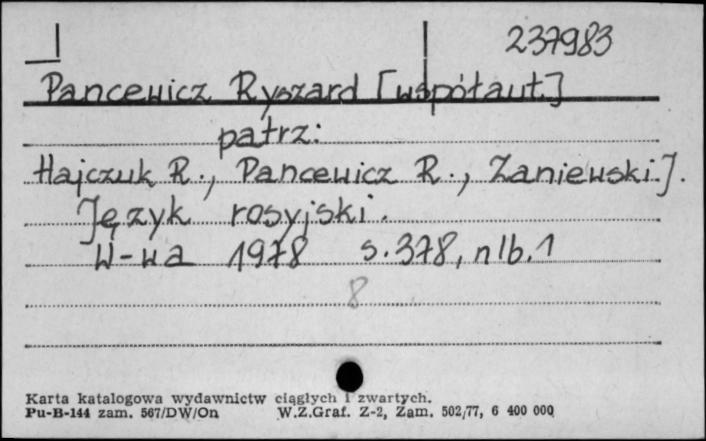 237983
Pancewicz Ryszard [współaut.]
patrz:
Hajczuk R., Pancewicz R., Zaniewski J.
Język rosyjski.
W-wa 1978 s. 378, nlb. 1
8
Karta katalogowa wydawnictw ciągłych i zwartych.
Pu-B-144 zam. 567/DW/On W.Z.Graf. Z-2, Zam. 502/77, 6 400 000